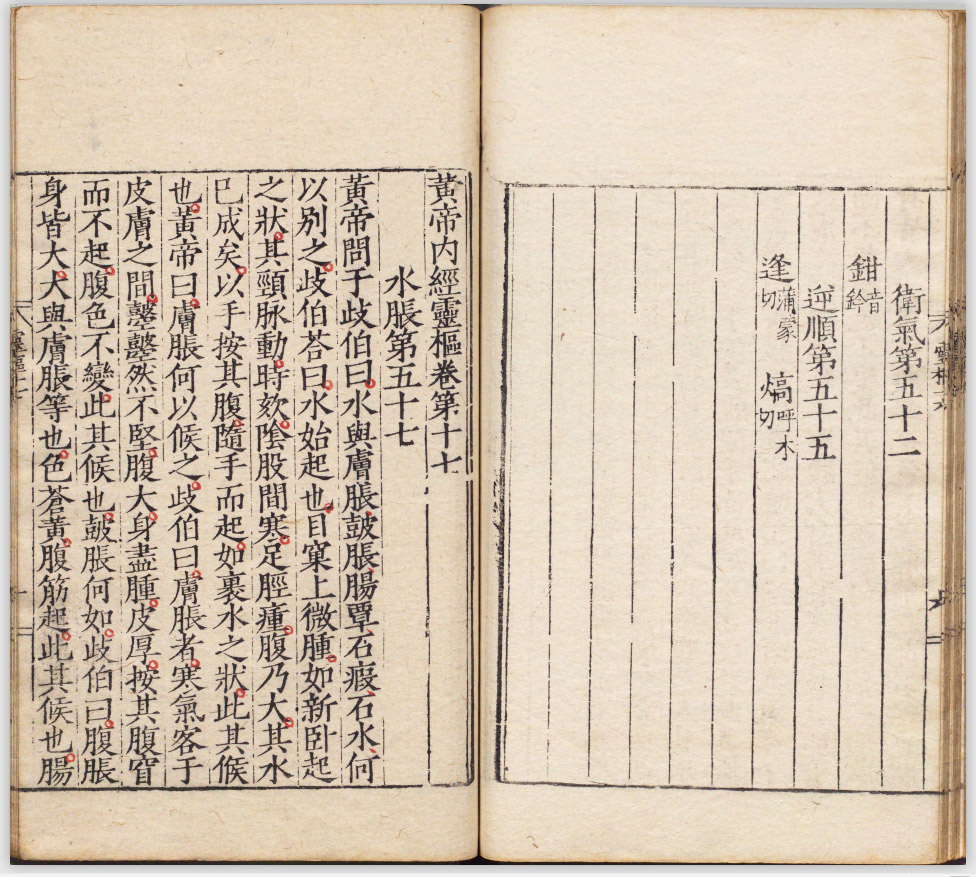 衛氣第五十二
鉗音鈐
逆順第五十五
逢蒲蒙切 熇呼木切
黃帝内經靈樞卷第十七
水脹第五十七
黃帝問于歧伯曰水與膚脹皷脹腸覃石瘕石水何
以別之歧伯荅曰水始起也目窠上微腫如新卧起
之狀其頸脉動時欬陰股間寒足脛瘇腹乃大其水
已成矣以手按其腹隨手而起如裹水之狀此其候
也黃帝曰膚脹何以候之歧伯曰膚脹者寒氣客于
皮膚之間𪔣𪔣然不堅腹大身盡腫皮厚按其腹窅
而不起腹色不變此其候也皷脹何如歧伯曰腹脹
身皆大大與膚脹等也色蒼黃腹筋起此其候也腸